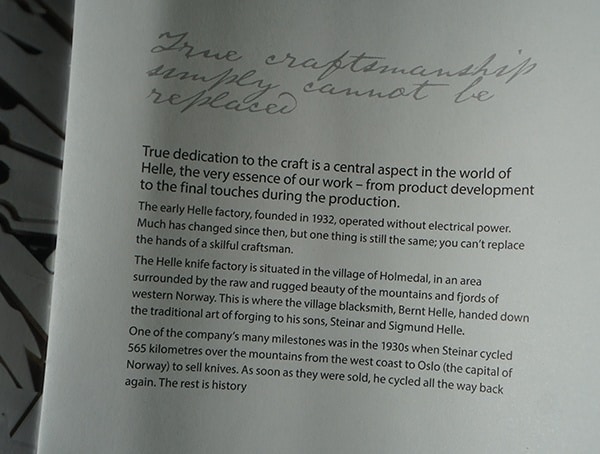 True craftsmanship
simply cannot be
replaced
True dedication to the craft is a central aspect in the world of
Helle, the very essence of our work – from product development
to the final touches during the production.
The early Helle factory, founded in 1932, operated without electrical power.
Much has changed since then, but one thing is still the same; you can't replace
the hands of a skilful craftsman.
The Helle knife factory is situated in the village of Holmedal, in an area
surrounded by the raw and rugged beauty of the mountains and fjords of
western Norway. This is where the village blacksmith, Bernt Helle, handed down
the traditional art of forging to his sons, Steinar and Sigmund Helle.
One of the company's many milestones was in the 1930s when Steinar cycled
565 kilometres over the mountains from the west coast to Oslo (the capital of
Norway) to sell knives. As soon as they were sold, he cycled all the way back
again. The rest is history